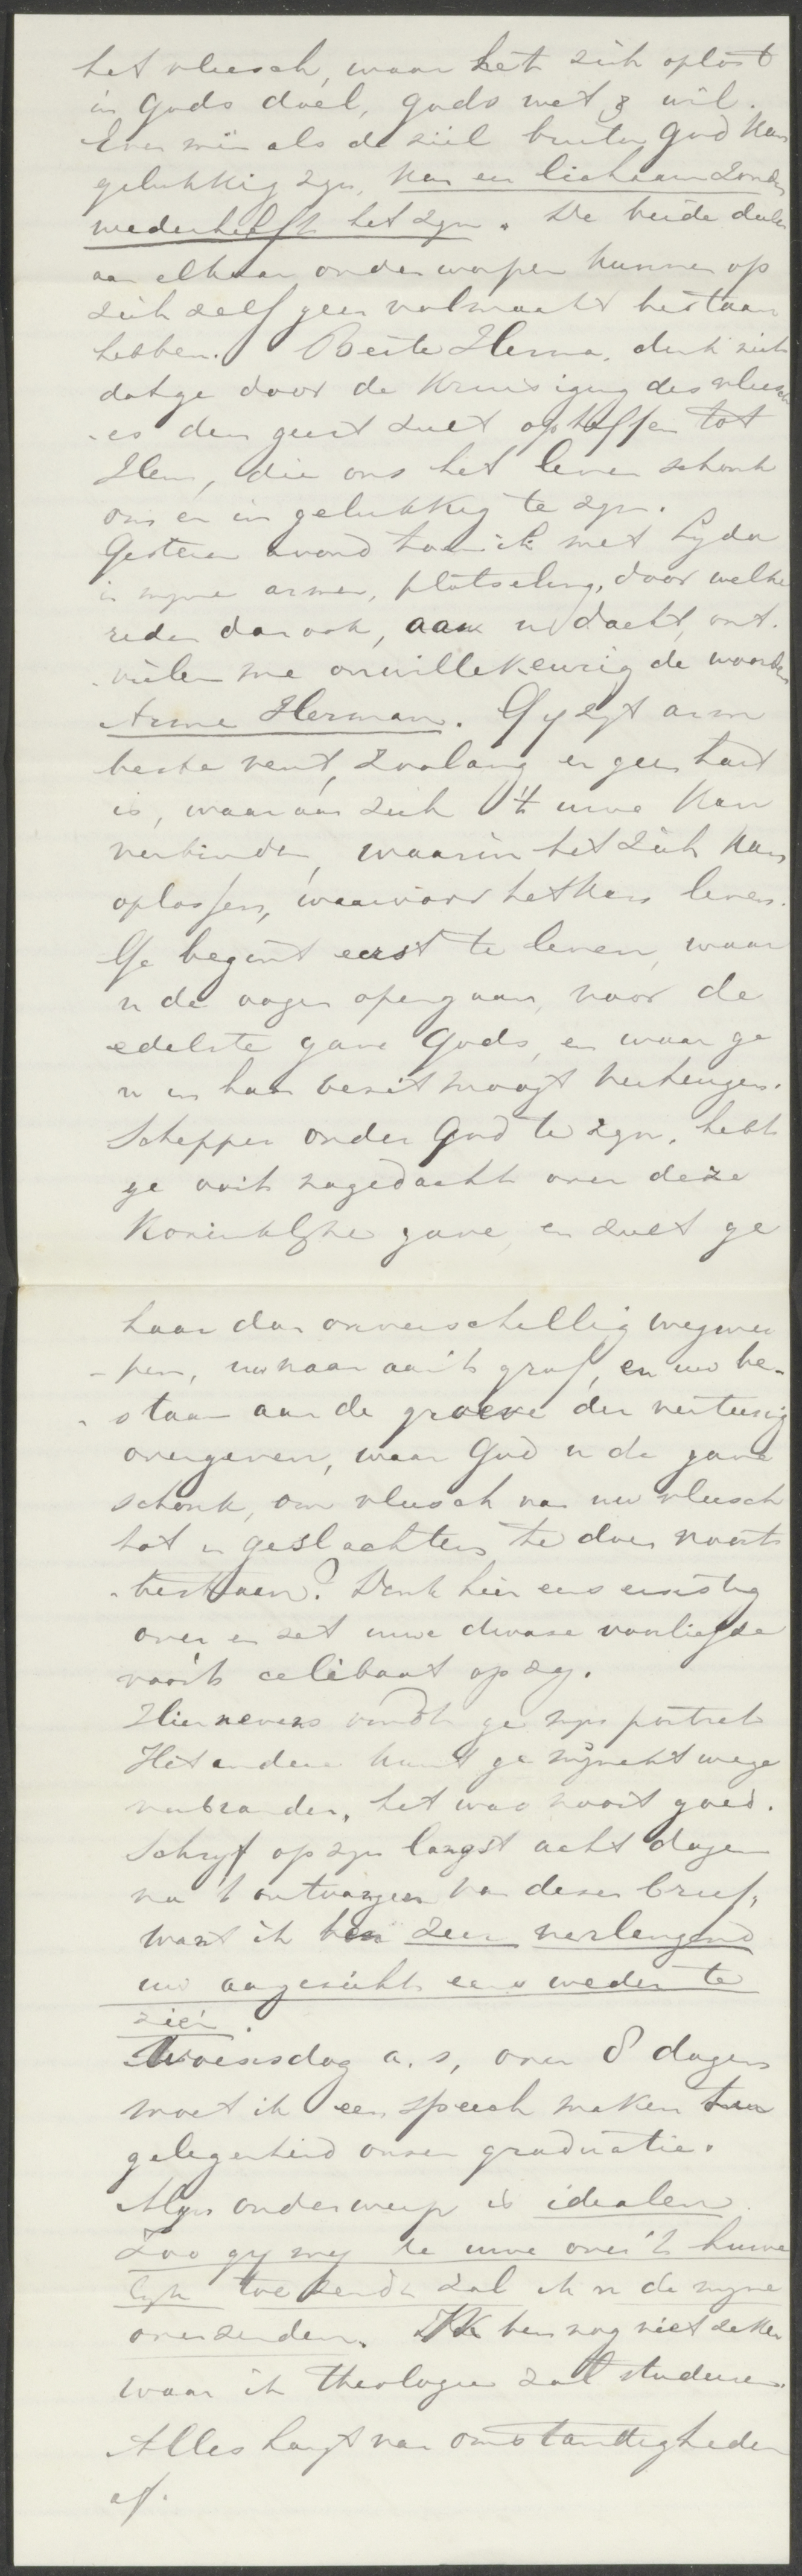 het vleesch, waar het zich oplost
in Gods doel, Gods wet & wil.
Even min als de ziel buiten God kan
gelukkig zyn, kan een lichaam zonder
wederhelft het zyn. De beide deelen
aan elkaar onderworpen kunnen op
zich zelf geen volmaakt bestaan
hebben. Beste Herma, denk niet
datge door de Kruisiging des vleesch
-es den geest zult opheffen tot
Hem, die ons het leven schonk
om er in gelukkig te zyn.
Gisteren avond toen ik met Lyda
in myne armen, plotseling, door welke
reden dan ook, aan u dacht, ont-
-vielen me onwillekeurig de woorden
Arme Herman. Gy zyt arm
beste vent, zoolang er geen hart
is, waaraan zich 't uwe kan
verbinden, waarin het zich kan
oplossen, waarvoor het kan leven.
Ge begint eerst te leven, waar
u de oogen opengaan, voor de
edelste gave Gods, en waar ge
u in haar bezit moogt verheugen.
Schepper onder God te zyn, hebt
ge ooit nagedacht over deze
Koninklyke gave, en zult ge
haar dan onverschillig wegwer
-pen, uw naam aan 't graf, en uw be-
-staan aan de groeve der vertering
overgeven, waar God u de gave
schonk, om vleesch van uw vleesch
tot in geslachten te doen voort-
-bestaan? Denk hier eens ernstig
over en zet uwe dwaze voorliefde
voor 't celibaat op zy.
Hiernevens vindt ge myn portret
Het andere kunt ge mynentwege
verbranden, het was nooit goed.
Schryf op zyn langst acht dagen
na 't ontvangen van dezen brief,
want ik ben zeer verlangend
uw aangezicht eens weder te
zien.
Woensdag a. s, over 8 dagen
moet ik een speech maken ter
gelegenheid onzer graduatie.
Myn onderwerp is idealen.
Zoo gy my de uwe over 't huwe
lyk toezendt zal ik u de myne
overzenden. Ik ben nog niet zeker
waar ik theologie zal studeeren.
Alles hangt van omstandigheden
af.